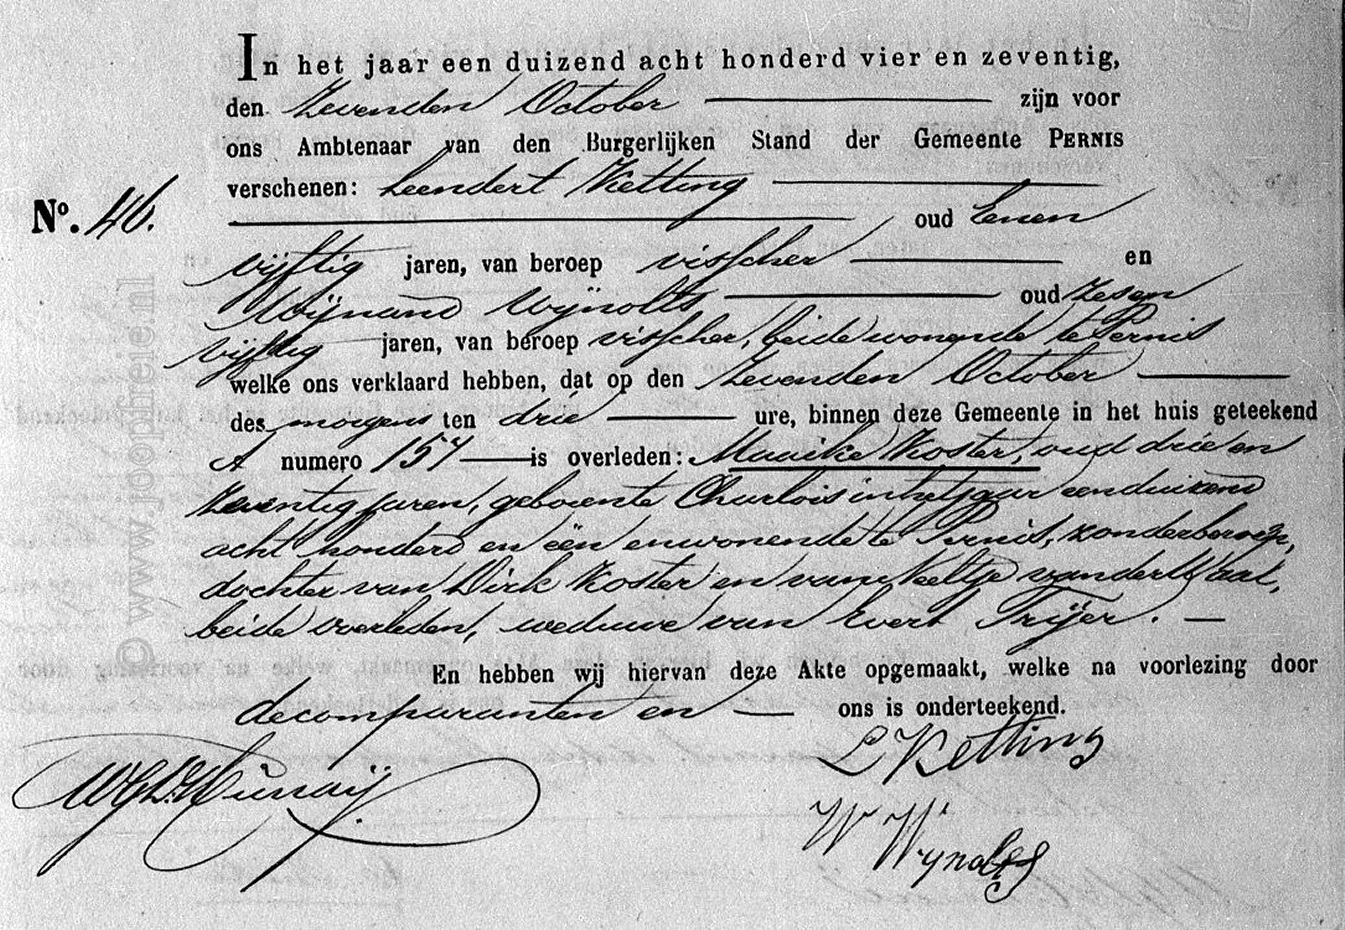 In het jaar een duizend acht honderd vier en zeventig,
den zevenden October zijn voor
ons Ambtenaar van den Burgerlijken Stand der Gemeente PERNIS
verschenen: Leendert Ketting
No. 46.
oud eenen
vijftig jaren, van beroep visscher en
Wijnand Wijnolts oud zesen
vijftig jaren, van beroep visscher, beide wonende te Pernis
welke ons verklaard hebben, dat op den zevenden October
des morgens ten drie ure, binnen deze Gemeente in het huis geteekend
A numero 157 is overleden: Maaike Koster, oud drie en
zeventig jaren, geboren te Charlois in het jaar een duizend
acht honderd en één en wonende te Pernis, zonder beroep,
dochter van Dirk Koster en van Neeltje van der Waal,
beide overleden, weduwe van Evert Trijer.
En hebben wij hiervan deze Akte opgemaakt, welke na voorlezing door
de comparanten en ons is onderteekend.
L Ketting
W Wynolts
© www.joopfreie.nl